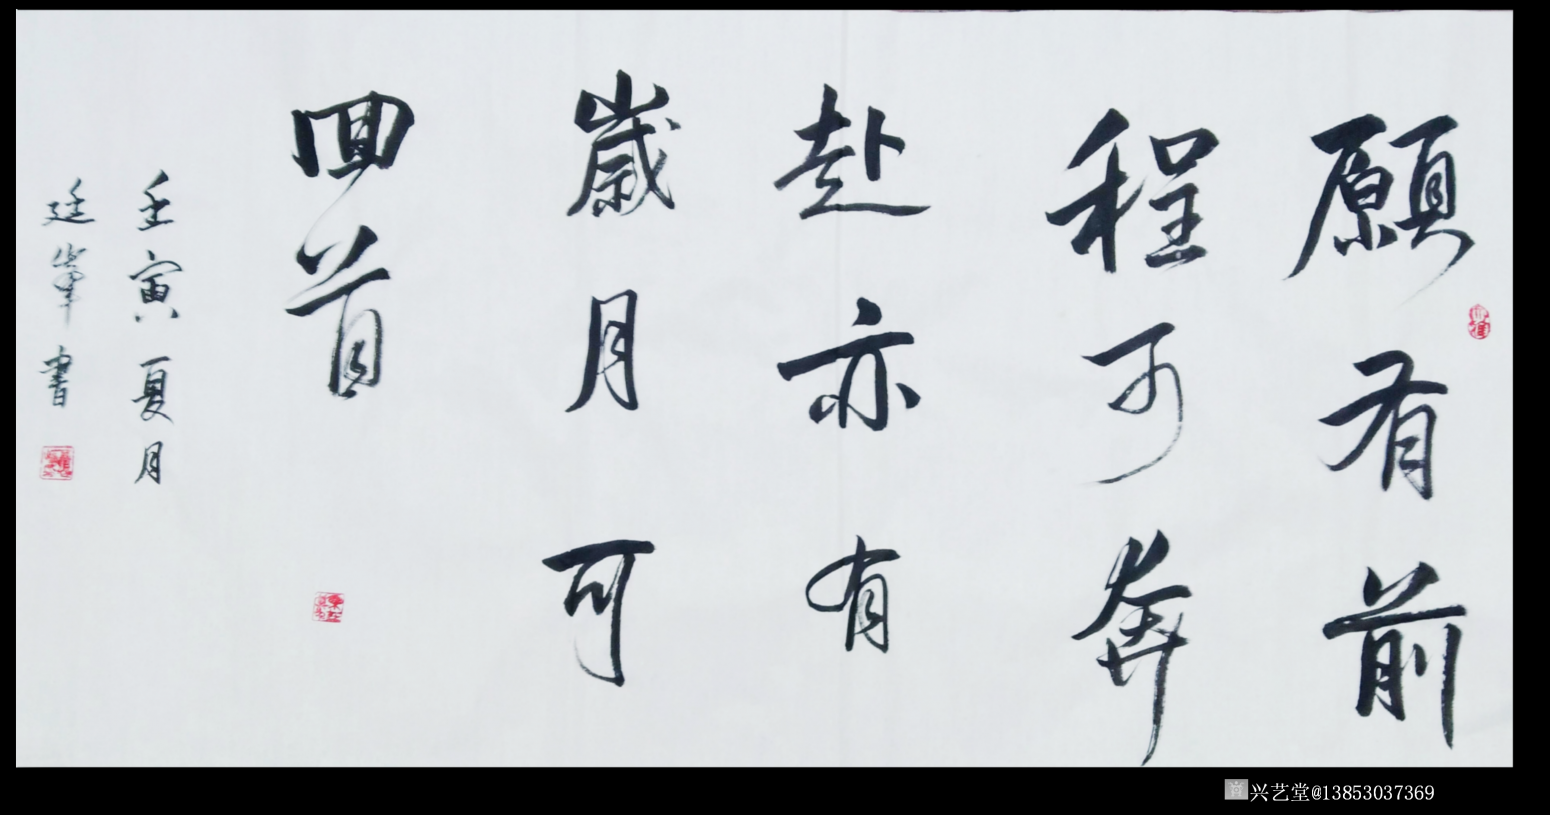 願有前
程可奔
赴亦有
歲月可
回首
壬寅夏月
廷峯書
兴艺堂@13853037369